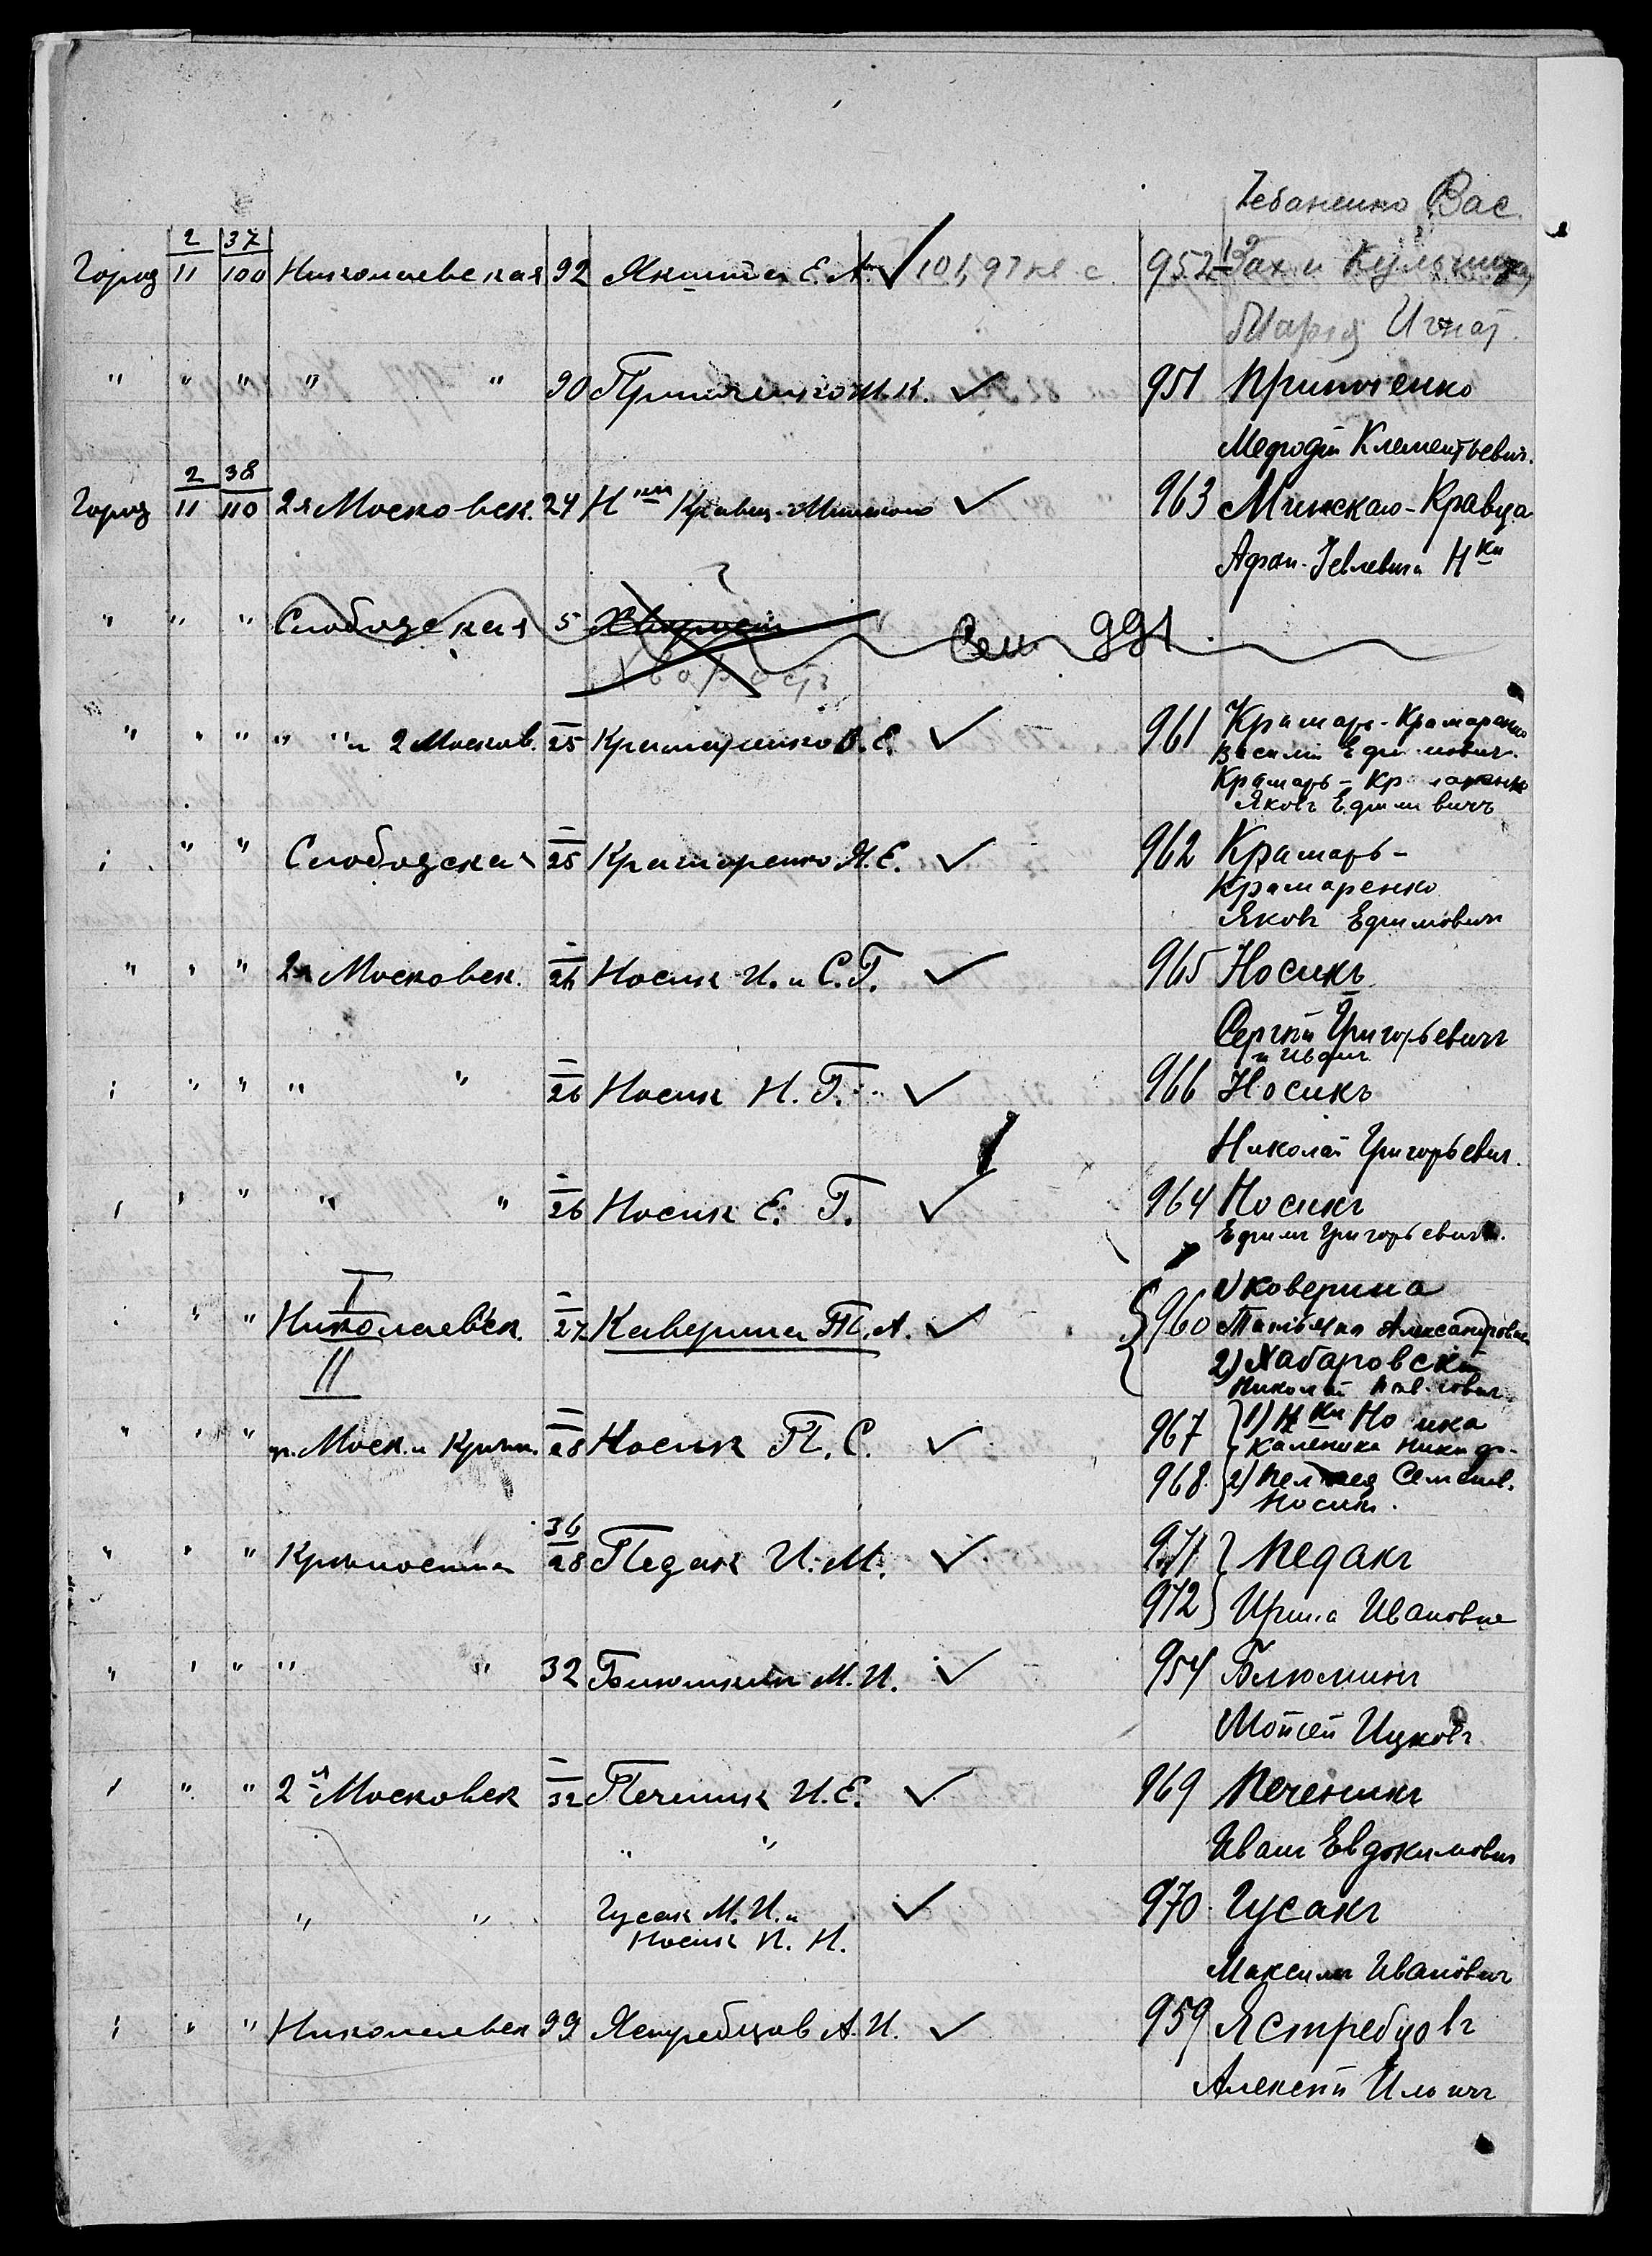 Чебаненко Вас.
2 37
Город 11 100 Николаевская 92 Якимца Е. А. ✓ 101, 97 не с. 952 Зах. и Кульчицкая
Мария Игнат.
" " " " " 90 Припоченко М. К. ✓ 951 Припоченко
Мефодій Клементьевич.
2 38
Город 11 110 2я Московск. 24 Н ки Кравца-Минского ✓ 963 Минскаго-Кравца
Афан. Іевлевича Н ки
" " " Слободская 5 Хворост Сем. 991.
Хворостъ
" " " " " и 2 Москов. 25 Крамаренко В. Е. ✓ 961 Крамарь-Крамаренко
Василій Ефимович.
Крамарь-Крамаренко
Яковъ Ефимовичъ
" " " Слободская 25 Крамаренко Я. Е. ✓ 962 Крамарь-
Крамаренко
Яковъ Ефимович
" " " 2я Московск. 26 Носик И. и С. Г. ✓ 965 Носикъ
Сергѣй Григорьевичъ
и Иванъ
" " " " " 26 Носик Н. Г. ✓ 966 Носикъ
Николай Григорьевич.
" " " " " 26 Носик Е. Г. ✓ 964 Носикъ
Ефимъ Григорьевичъ.
I
" " " Николаевск. 27 Каверина Т. А. ✓ 960 1) Коверина
Татьяна Александровна
II 2) Хабаровскій
Николай
" " " п. Моск. и Крѣп. 28 Носик П. С. ✓ 967 1) Н ки Носика
Каленика Никиф.
968. 2) Пелагея Семенов.
Носик.
36
" " " Крѣпостная 28 Педак И. М. ✓ 971 Педакъ
972 Ирина Ивановна
" " " " " 32 Блюмкин М. И. ✓ 954 Блюминъ
Мойсей Ицковъ
" " " 2я Московск 32 Печеник И. Е. ✓ 969 Печеникъ
" " Иванъ Евдокимович
" " Гусак М. И. и ✓ 970. Гусакъ
Носик И. Н.
Максимъ Иванович
" " " Николаевск 99 Ястребцов А. И. ✓ 959 Ястребцовъ
Алексѣй Ильичъ